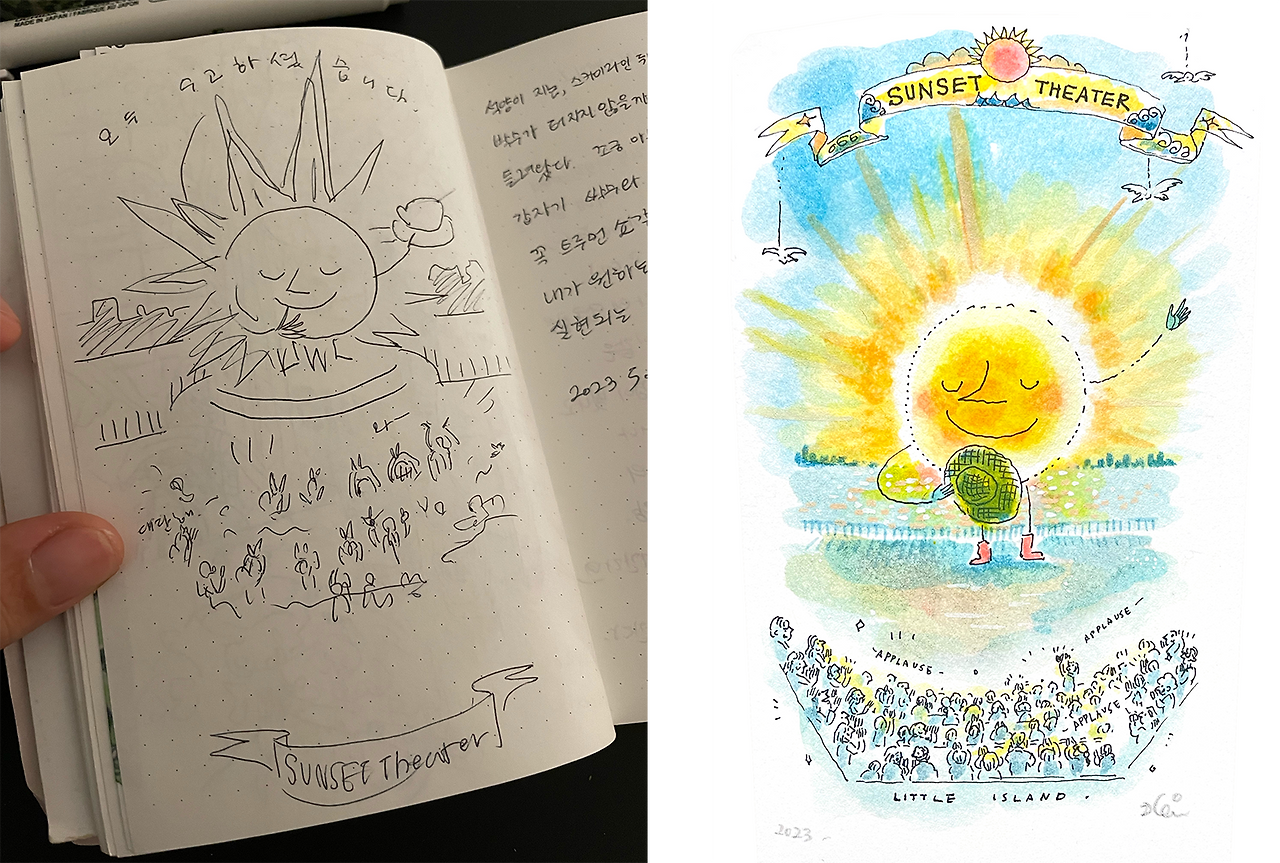 MADE IN JAPAN / FABRIQUÉ AU JAPON
오늘 수고하셨습니다.
와
YO
SUNSET Theater
석양이 지는, 스카이라인
박수가 터지지 않을까
들려왔다.
갑자기
꼭 트루먼 쇼
내가 원하는
실현되는
2023 5.
SUNSET THEATER
APPLAUSE
APPLAUSE
APPLAUSE
LITTLE ISLAND.
2023